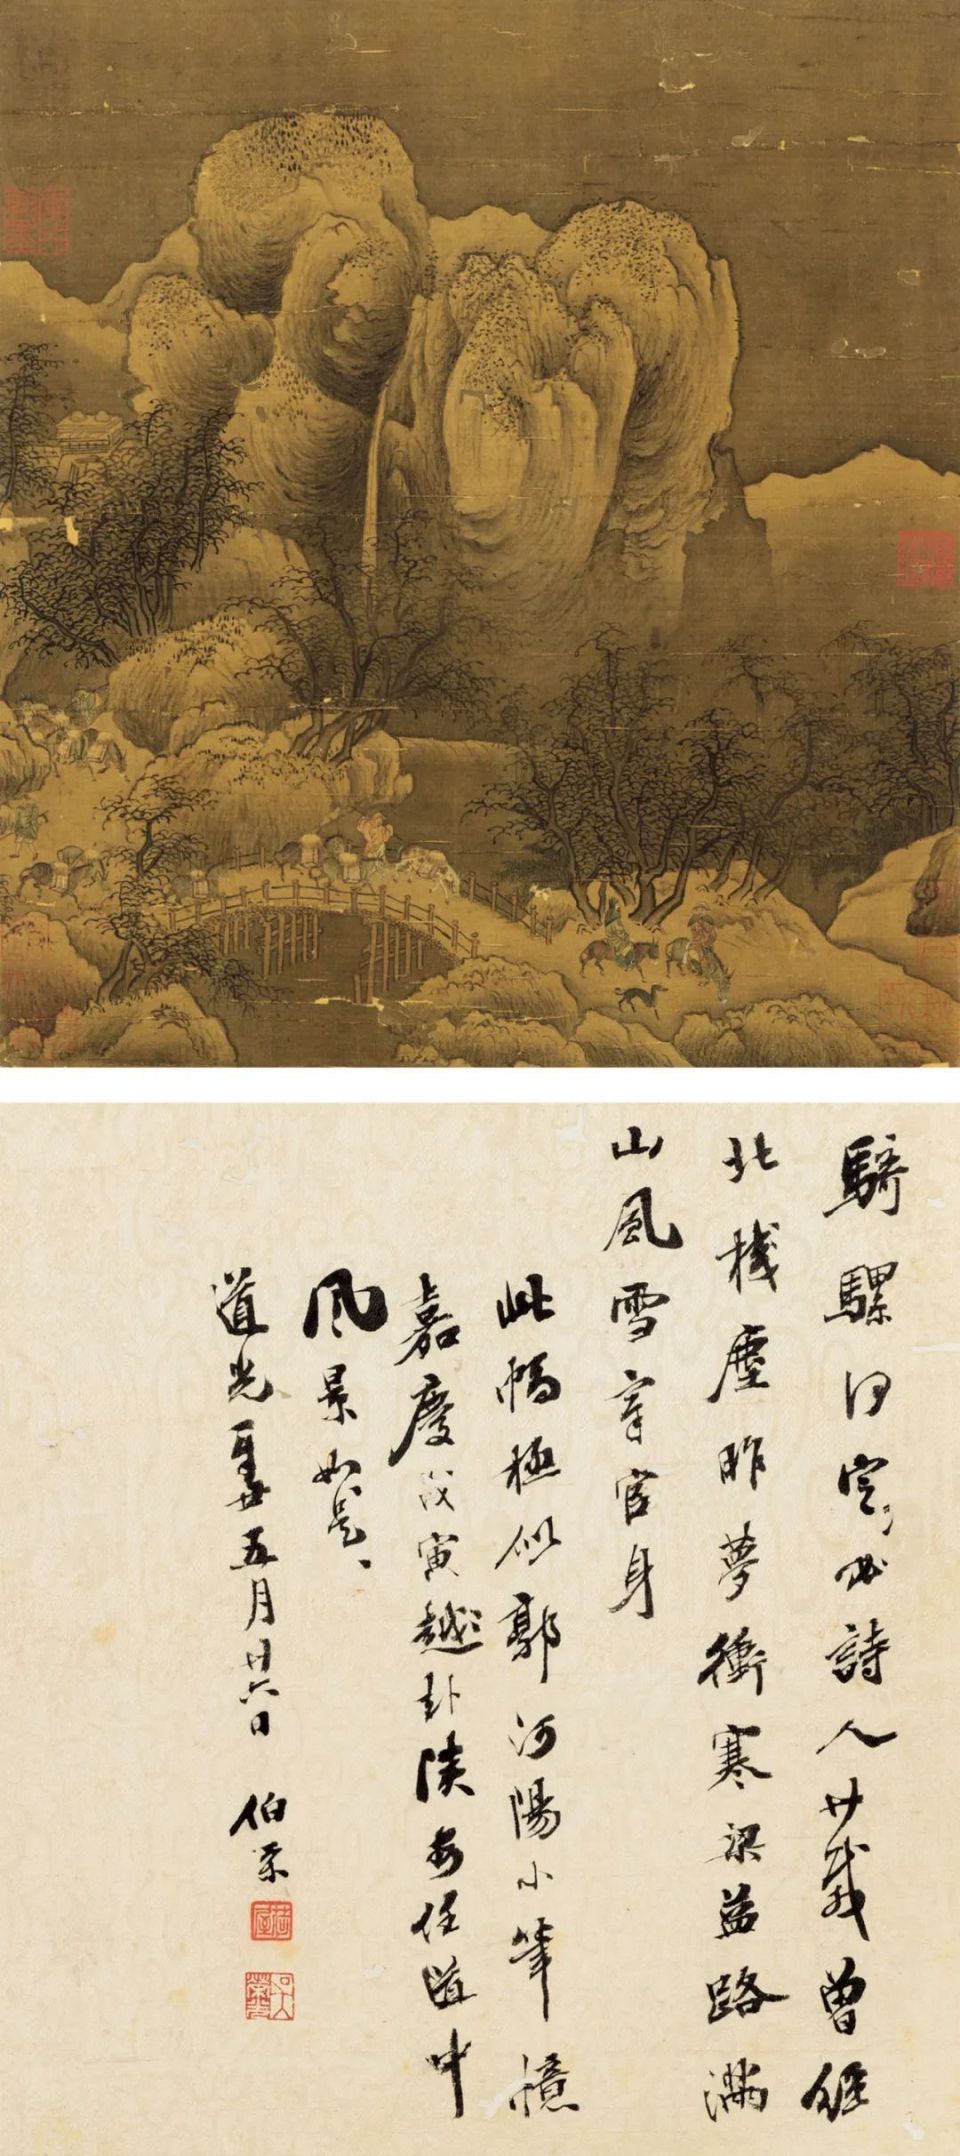 騎騾何定必詩人廿載曾經
北棧塵昨夢衝寒梁益路滿
山風雪宰官身
此幅極似郭河陽小筆憶
嘉慶戊寅越赴陝安任道中
風景如是
道光五月廿六日 伯榮